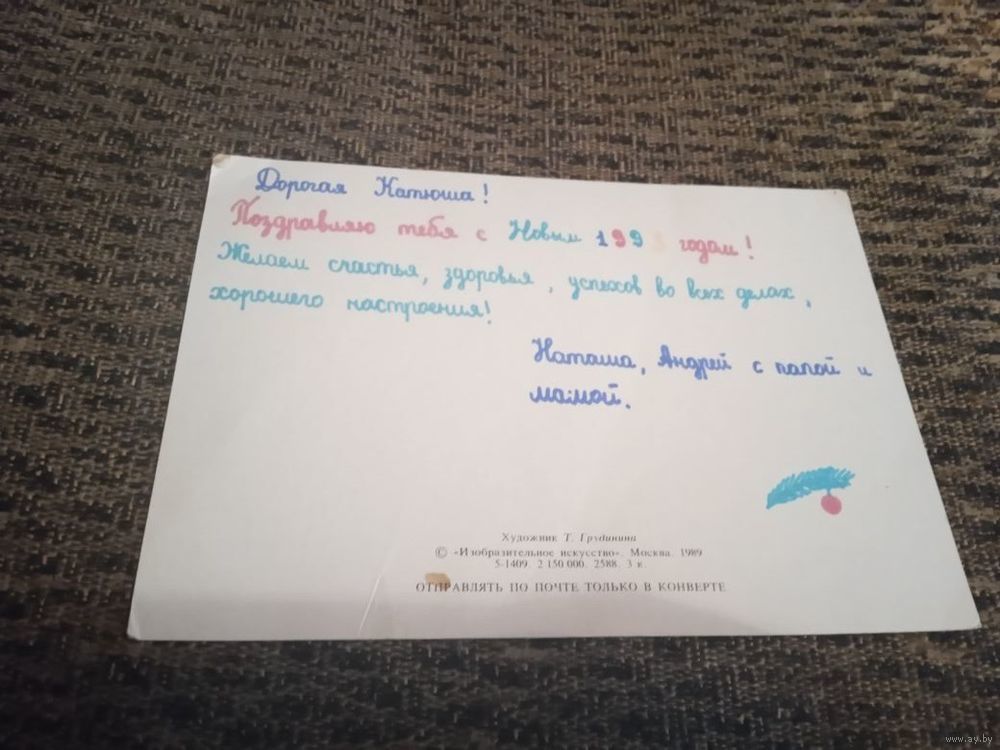 Дорогая Катюша!
Поздравляю тебя с Новым 199 годом!
Желаем счастья, здоровья, успехов во всех делах,
хорошего настроения!
Наташа, Андрей с папой и
мамой.
Художник Т. Грудинина
© «Изобразительное искусство». Москва. 1989
5-1409. 2 150 000. 2588. 3 к.
ОТПРАВЛЯТЬ ПО ПОЧТЕ ТОЛЬКО В КОНВЕРТЕ
www.ay.by